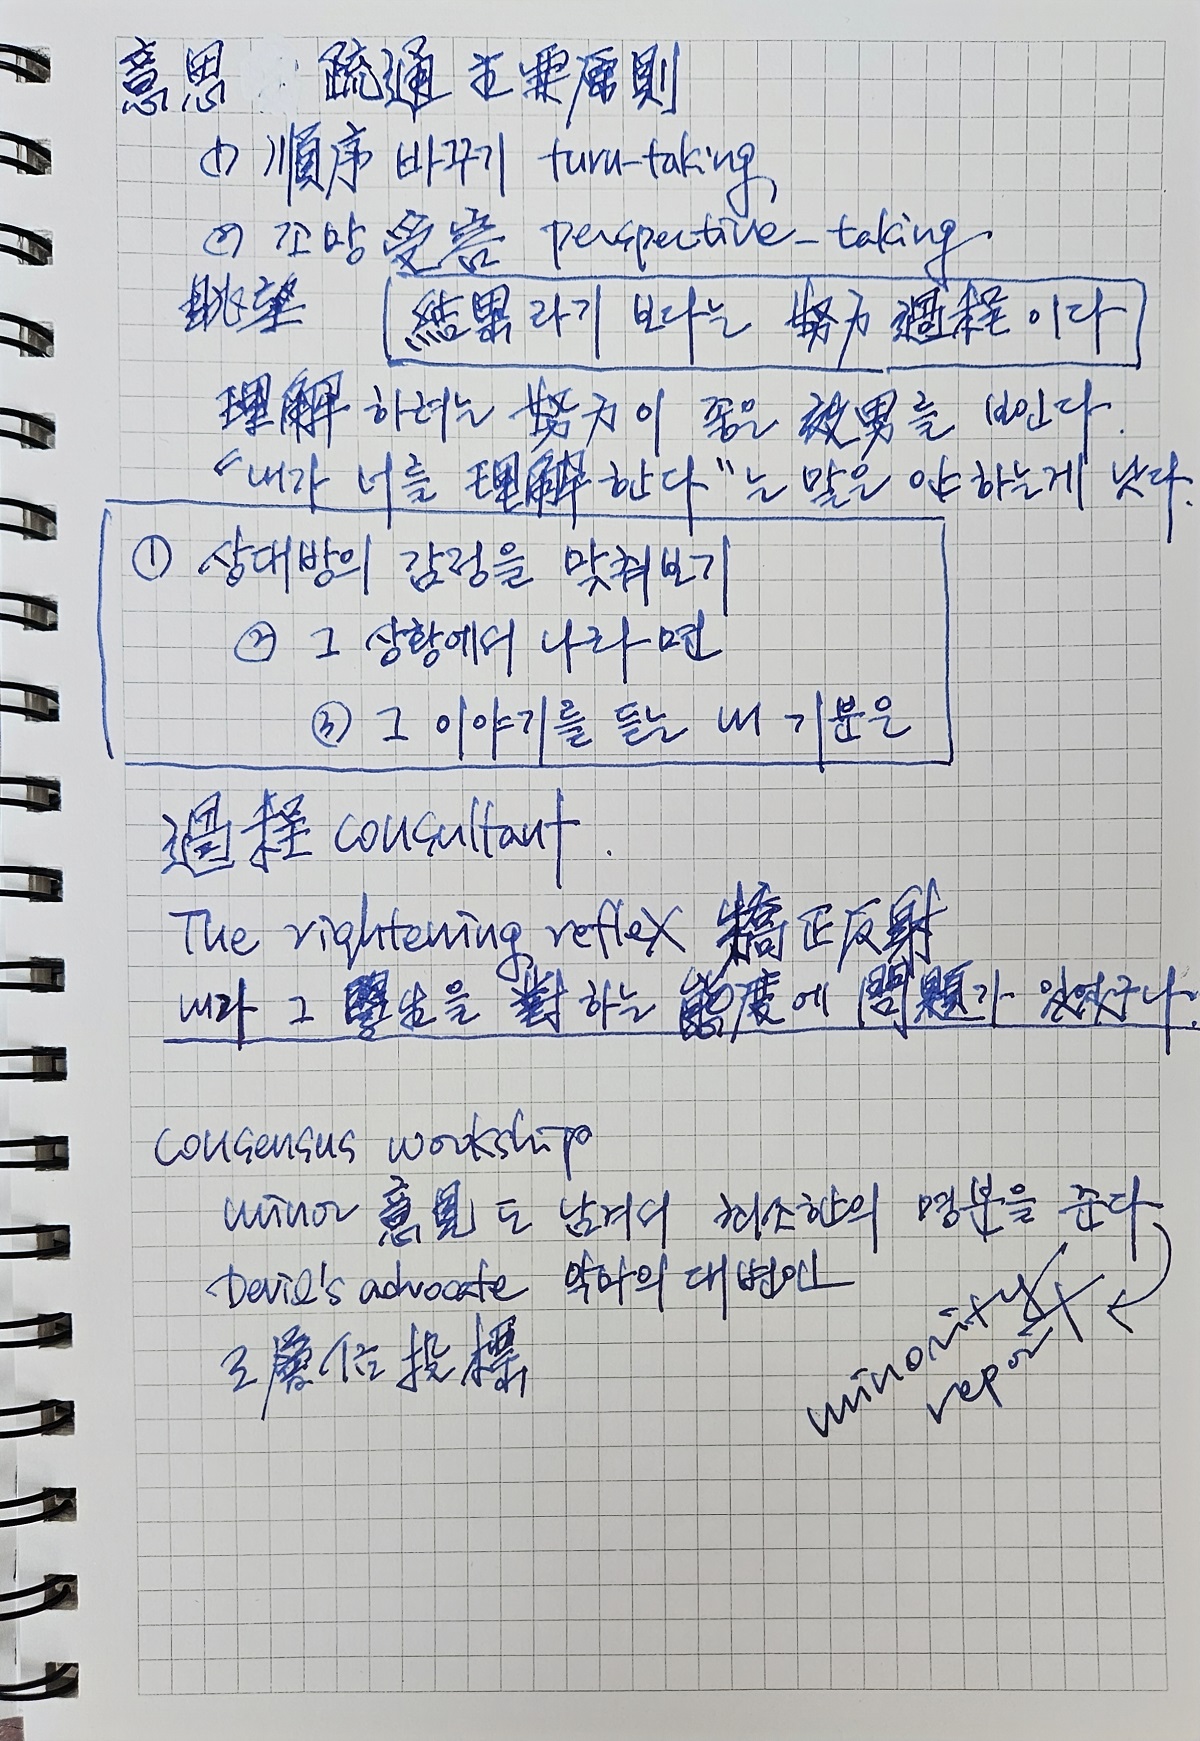 意思 疏通 主要原則
(1) 順序 바꾸기 turn-taking
(2) 조망 受容 perspective-taking
眺望 結果라기 보다는 努力 過程이다
理解하려는 努力이 좋은 效果를 보인다.
"내가 너를 理解한다"는 말은 안 하는게 낫다.
① 상대방의 감정을 맞춰보기
② 그 상황에서 나라면
③ 그 이야기를 듣는 내 기분은
過程 consultant.
The rightening reflex 矯正反射
내가 그 學生을 對하는 態度에 問題가 있었구나.
consensus workship
minor 意見도 남겨서 최소한의 명분을 준다
Devil's advocate 악마의 대변인
minority report
投標